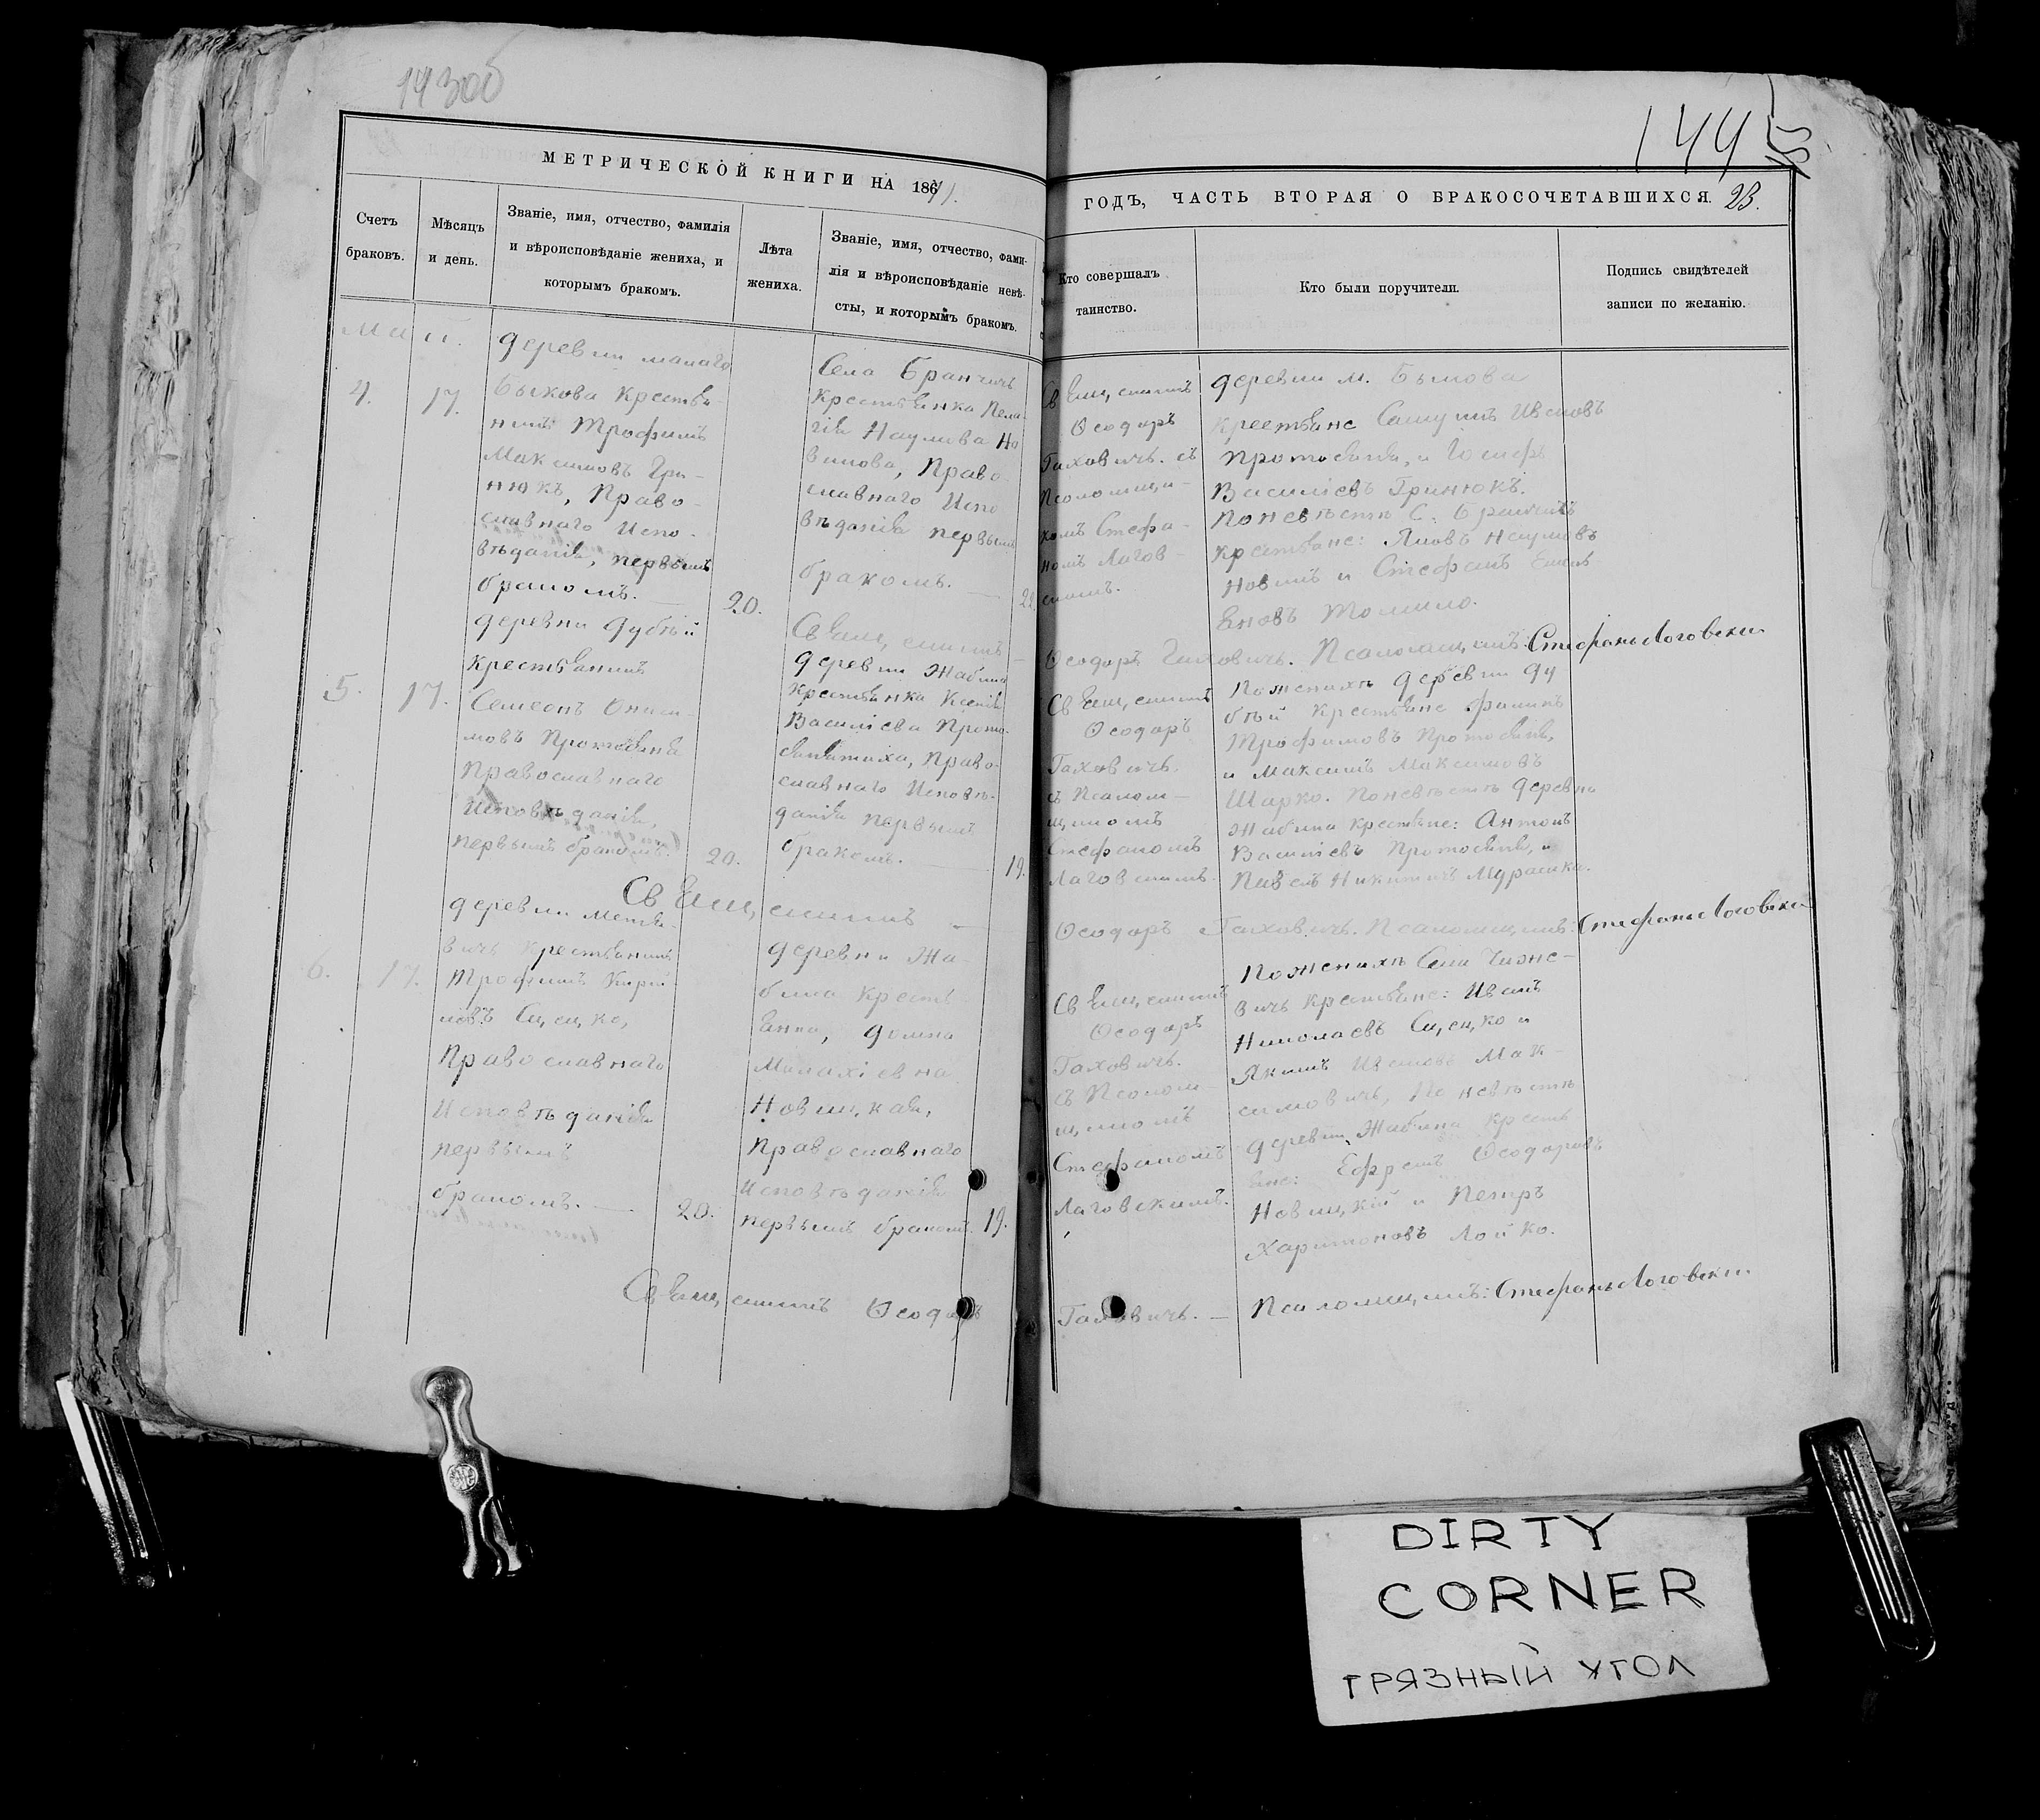 143об
144
МЕТРИЧЕСКОЙ КНИГИ НА 1871.
ГОДЪ, ЧАСТЬ ВТОРАЯ О БРАКОСОЧЕТАВШИХСЯ. 23.
Счетъ
браковъ.
Мѣсяцъ
и день.
Званіе, имя, отчество, фамилія
и вѣроисповѣданіе жениха, и
которымъ бракомъ.
Лѣта
жениха.
Званіе, имя, отчество, фами-
лія и вѣроисповѣданіе невѣ-
сты, и которымъ бракомъ.
Кто совершалъ
таинство.
Кто были поручители.
Подпись свидѣтелей
записи по желанію.
4.
17.
деревни малаго
Быкова крестья-
нинъ Трофимъ
Максимовъ Гри-
нюкъ, Право-
славнаго Испо-
вѣданія, первымъ
бракомъ.
20.
Села Бранчичъ
крестьянка Пела-
гія Наумова Но
викова, Право
славнаго Испо
вѣданія первымъ
бракомъ.
Священникъ
Ѳеодоръ
Гаховичъ. съ
Псаломщи-
комъ Стефа-
номъ Лагов-
скимъ.
деревни м. Быкова
крестьяне Самуилъ Ивановъ
Протосѣня, и Іосифъ
Василіевъ Гринюкъ.
По невѣстѣ С. Бранчичъ
крестьяне: Яковъ Наумовъ
Новикъ и Стефанъ
Томило.
Священникъ
Ѳеодоръ Гаховичъ. Псаломщикъ: Стефанъ Логовски
5.
17.
деревни Дубѣй
крестьянинъ
Симеонъ Ониси-
мовъ Протосѣня
Православнаго
Исповѣданія,
первымъ бракомъ.
20.
деревни Жабина
крестьянка Ксенія
Василіева Прото-
Право-
славнаго Исповѣ-
данія первымъ
бракомъ.
19.
Священникъ
Ѳеодоръ
Гаховичъ.
съ Псалом-
щикомъ
Стефаномъ
Лаговскимъ.
По женихѣ деревни Ду
бѣй крестьяне Филипъ
Трофимовъ Протосѣня,
и Максимъ Максимовъ
Шарко. По невѣстѣ деревни
Жабина крестьяне: Антонъ
Василіевъ Протосѣня, и
Павелъ Никитинъ Мурашка.
Священникъ
Ѳеодоръ Гаховичъ. Псаломщикъ: Стефанъ Логовски
6.
17.
деревни Метя-
вичъ крестьянинъ
Трофимъ Кири-
ловъ Сицко,
Православнаго
Исповѣданія
первымъ
бракомъ.
20.
деревни Жа-
бина кресть-
янка, Домна
Малахіевна
Новицкая,
Православнаго
Исповѣданія
первымъ бракомъ.
19.
Священникъ
Ѳеодоръ
Гаховичъ.
съ Псалом-
щикомъ
Стефаномъ
Лаговскимъ.
По женихѣ Села Чиже-
вичъ крестьяне: Иванъ
Николаевъ Сицко и
Якимъ Ивановъ Мак-
симовичъ, По невѣстѣ
деревни Жабина кресть
яне: Ефремъ Ѳеодоровъ
Новицкій и Петръ
Харитоновъ Лойко.
Священникъ Ѳеодоръ
Гаховичъ. Псаломщикъ: Стефанъ Логовски
DIRTY
CORNER
ГРЯЗНЫЙ УГОЛ